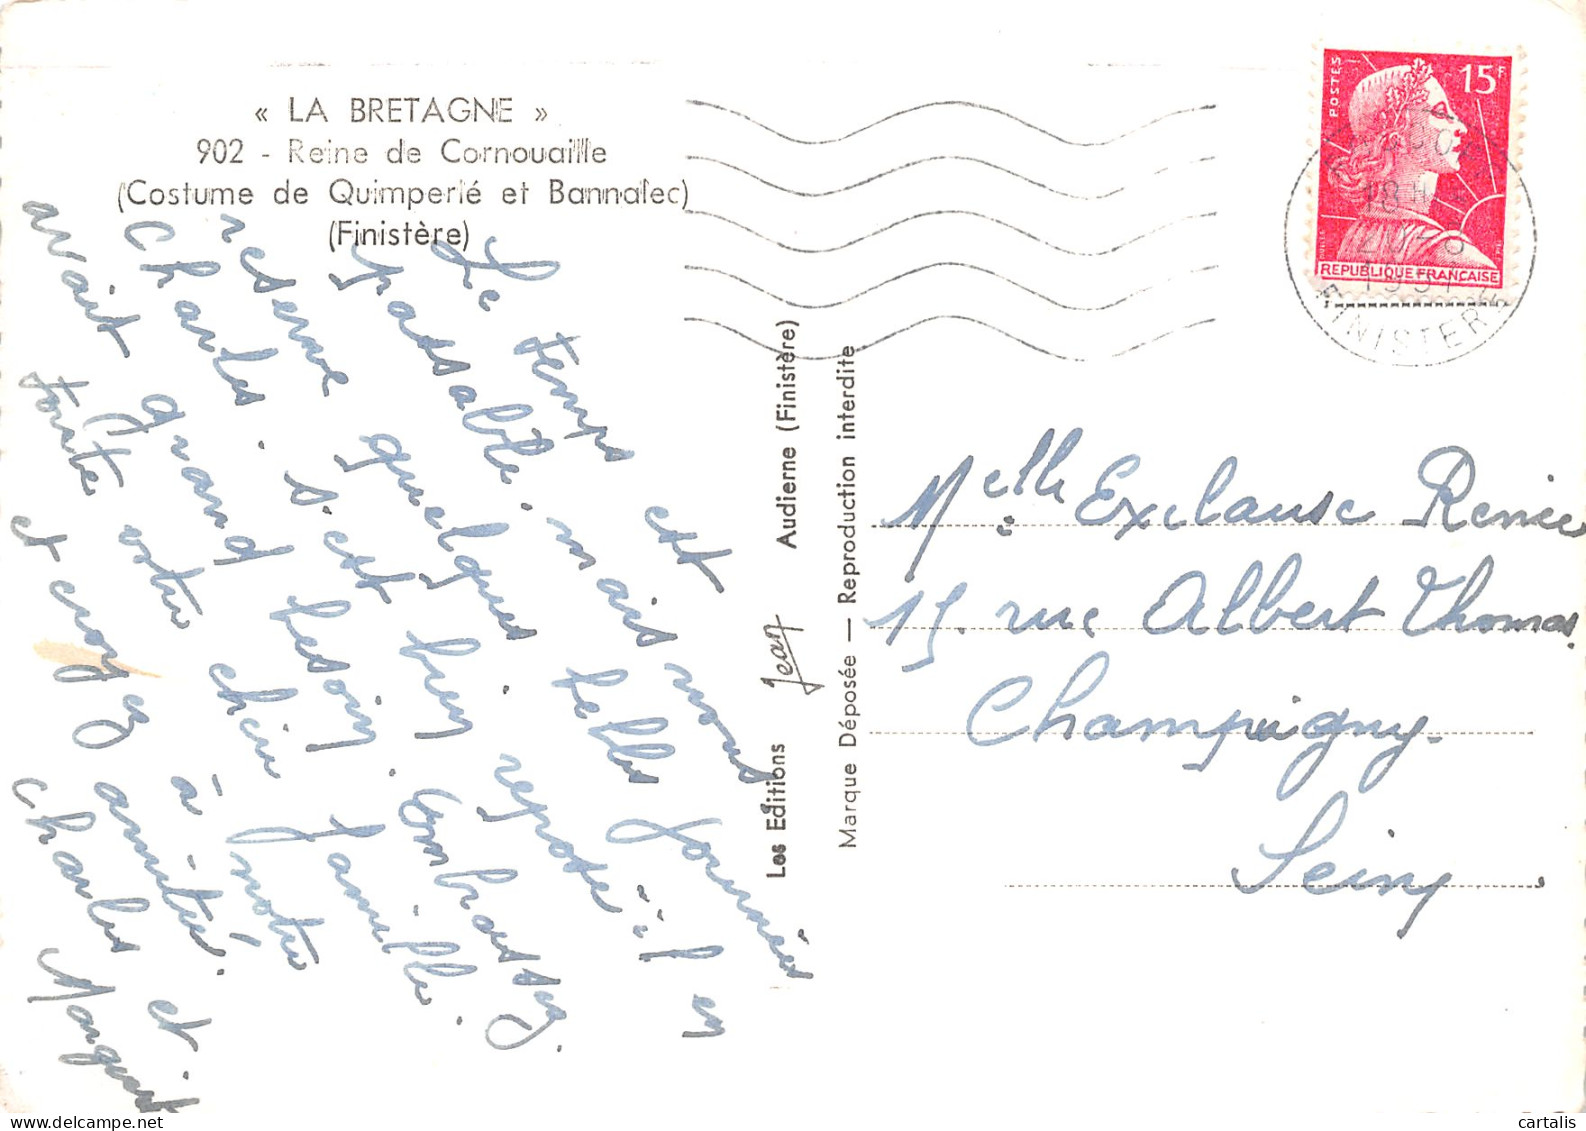 « LA BRETAGNE »
902 - Reine de Cornouaille
(Costume de Quimperlé et Bannalec)
(Finistère)
Le temps est
passable, mais nous
réserve quelques belles journées
Charles s'est bien reposé, il en
avait grand besoin. Embrassez
toute votre chère famille.
et croyez à notre
amitié.
Charles et
Les Editions Jean Audierne (Finistère)
Marque Déposée — Reproduction interdite
POSTES
15F
REPUBLIQUE FRANÇAISE
18 H
20-8
1957
FINISTERE
Melle Exclause Renée
15. rue Albert Thomas.
Champigny.
Seine
cartalis